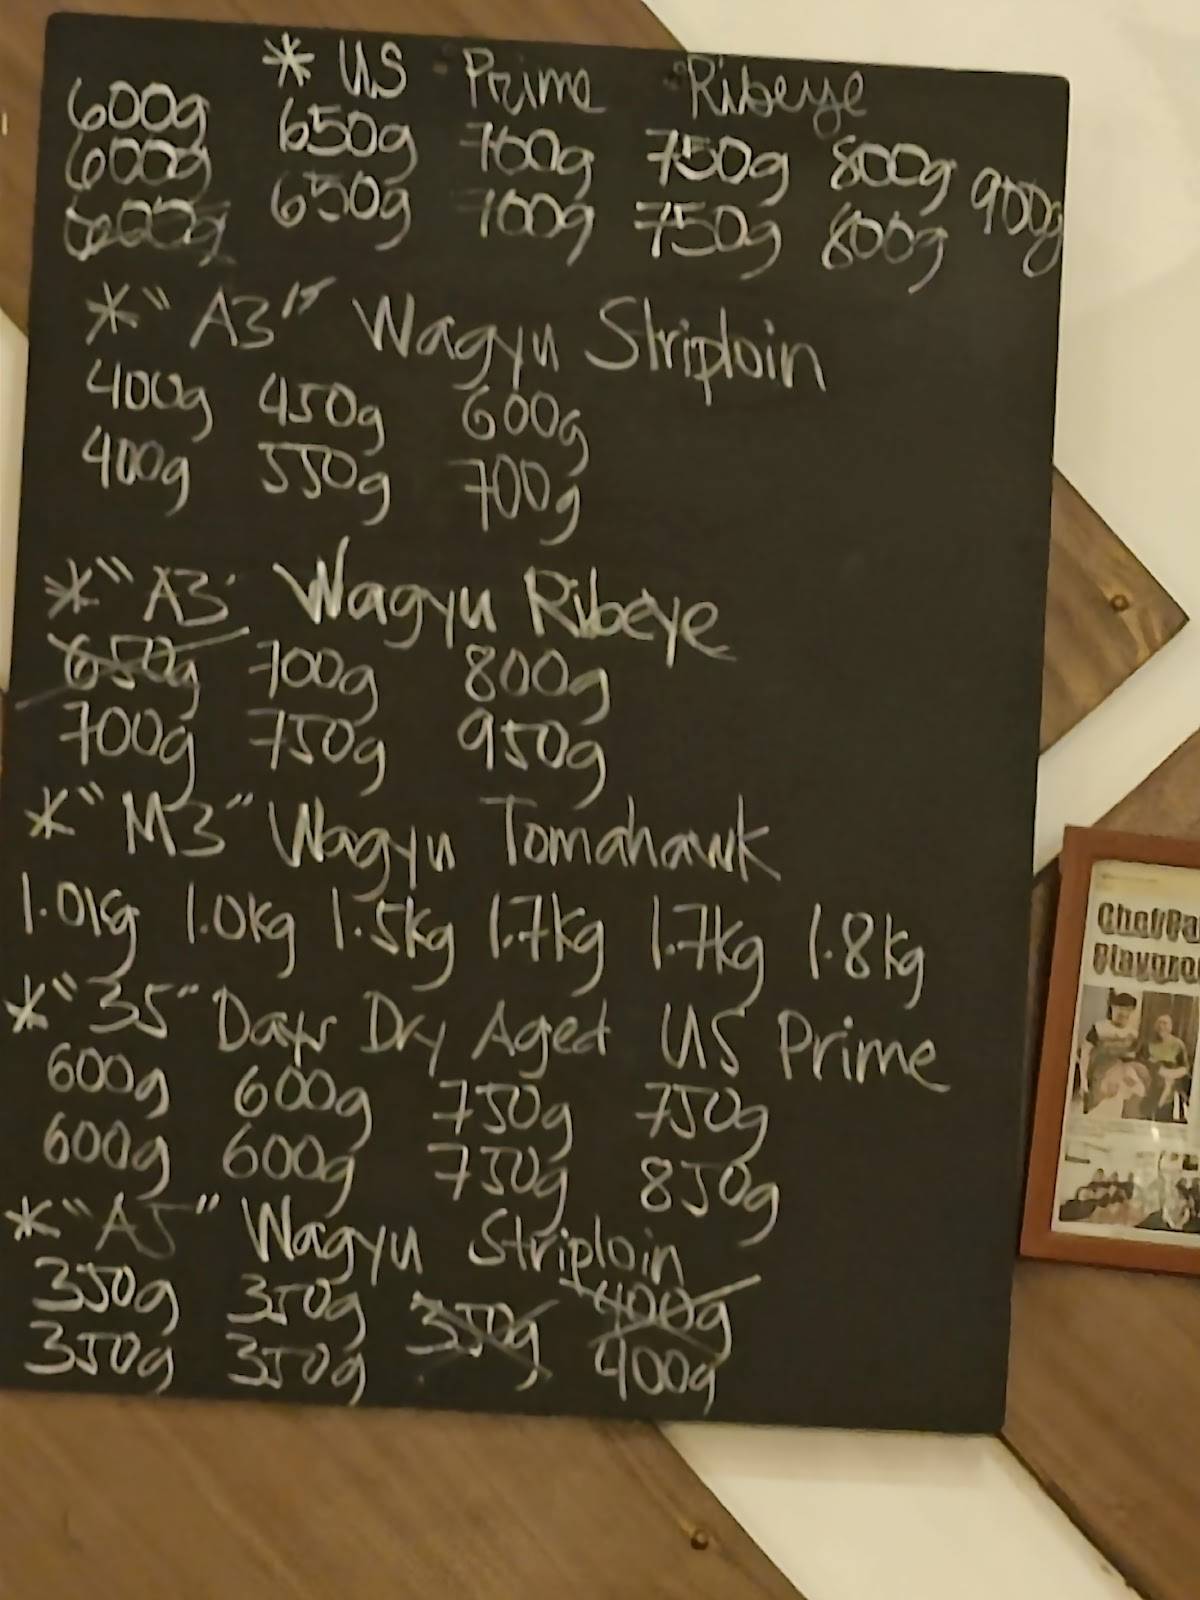 * US Prime Ribeye
600g 650g 700g 750g 800g 900g
600g 650g 700g 750g 800g
600g
* "A3" Wagyu Striploin
400g 450g 600g
400g 550g 700g
* "A3" Wagyu Ribeye
650g 700g 800g
700g 750g 950g
* "M3" Wagyu Tomahawk
1.0kg 1.0kg 1.5kg 1.7kg 1.7kg 1.8kg
* "35" Days Dry Aged US Prime
600g 600g 750g 750g
600g 600g 750g 850g
* "A5" Wagyu Striploin
350g 350g 350g 400g
350g 350g 400g